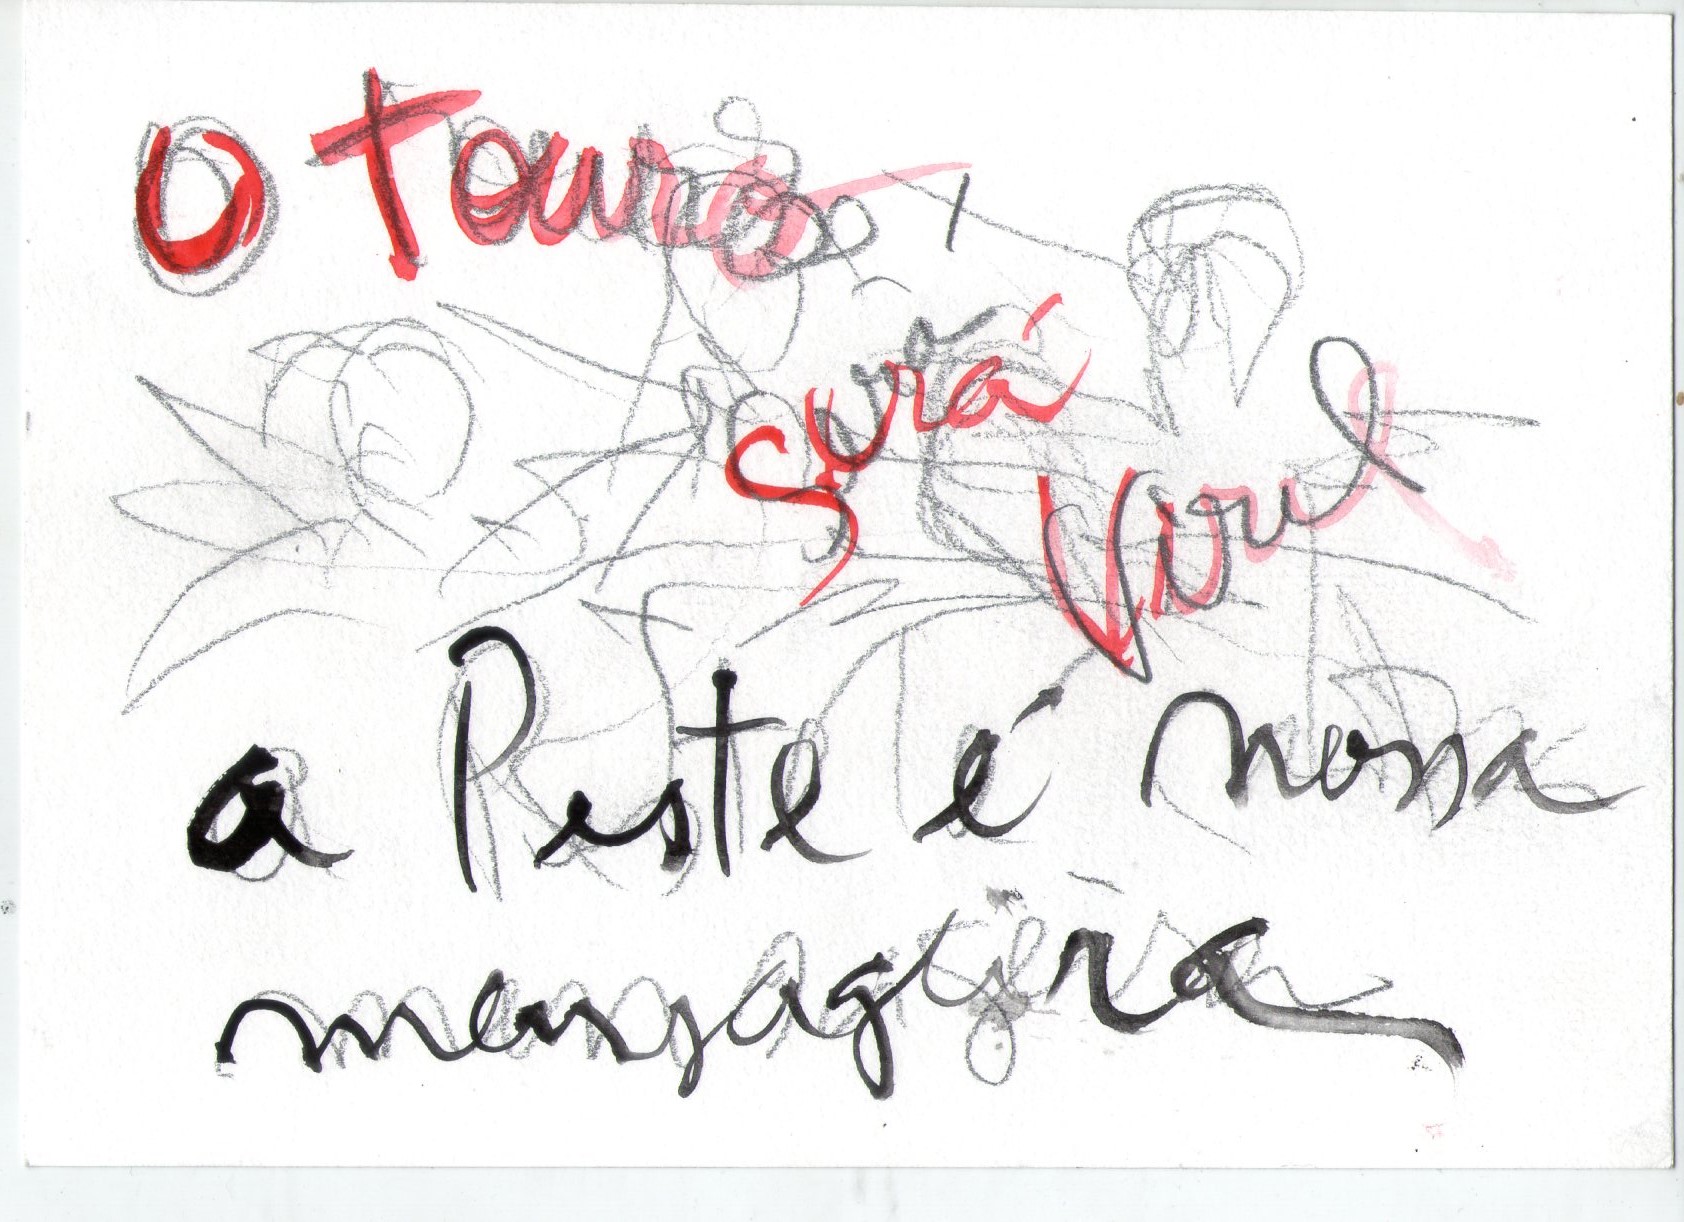 O touro
será
viril
a Peste é nossa
mensageira